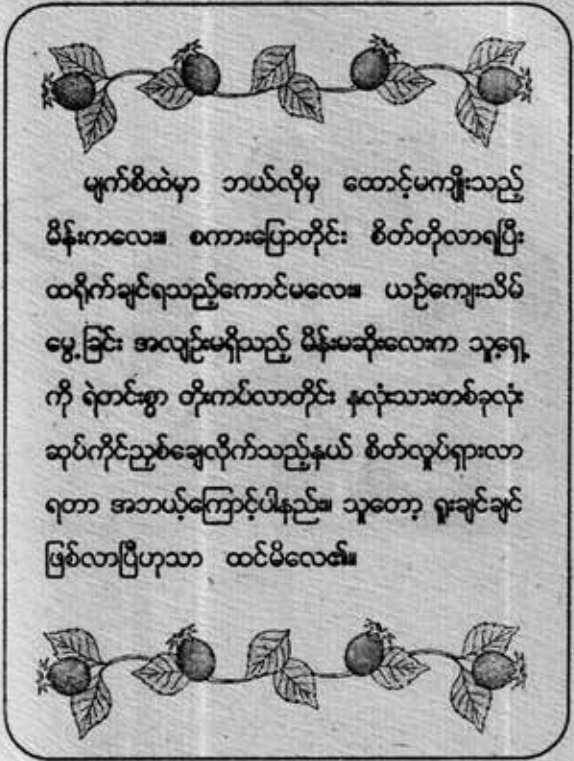 မျက်စိထဲမှာ ဘယ်လိုမှ ထောင့်မကျိုးသည့်
မိန်းကလေး။ စကားပြောတိုင်း စိတ်တိုလာရပြီး
ထရိုက်ချင်ရသည့်ကောင်မလေး။ ယဉ်ကျေးသိမ်
မွေ့ခြင်း အလျဉ်းမရှိသည့် မိန်းမဆိုးလေးက သူ့ရှေ့
ကို ရဲတင်းစွာ တိုးကပ်လာတိုင်း နှလုံးသားတစ်ခုလုံး
ဆုပ်ကိုင်ညှစ်ချေလိုက်သည့်နှယ် စိတ်လှုပ်ရှားလာ
ရတာ အဘယ့်ကြောင့်ပါနည်း။ သူတော့ ရူးချင်ချင်
ဖြစ်လာပြီဟုသာ ထင်မိလေ၏။